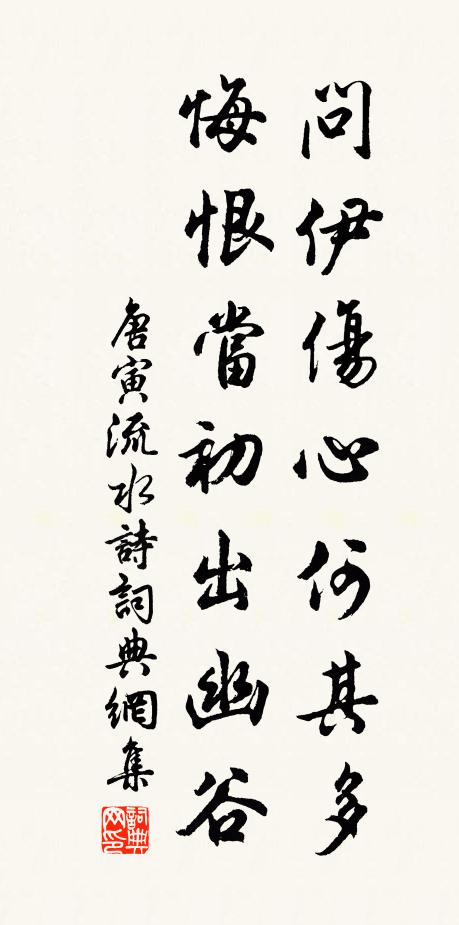 問伊傷心何其多
悔恨當初出幽谷
唐寅流水詩詞典網集
詞典网印